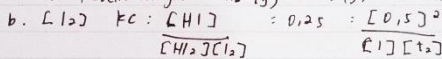 b. [I2] KC : [HI] / [HI2][I2] : 0,25 : [0,5]² / [1][I2]